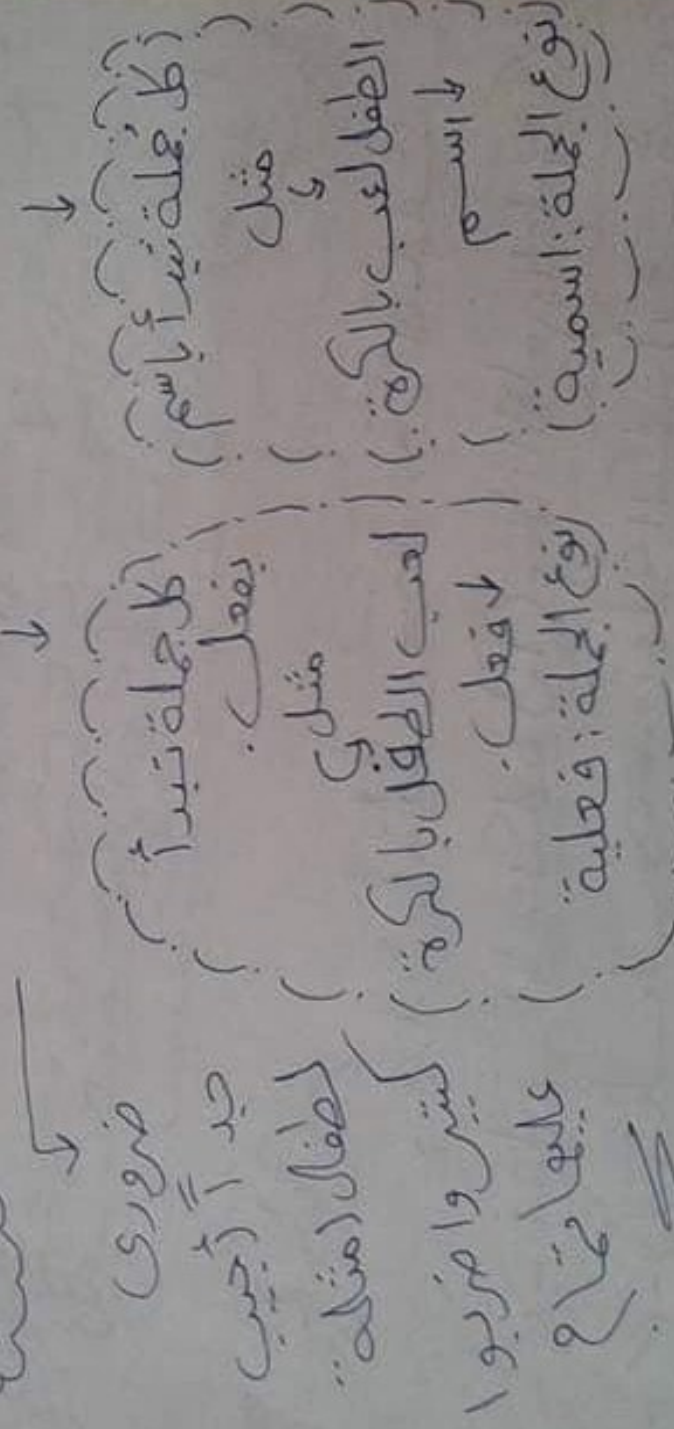 كل جملة تبدأ بإسم
مثل
الطفل يلعب بالكرة
اسم
نوع الجملة: اسمية
كل جملة تبدأ
بفعل.
مثل
لعب الطفل بالكرة
فعل.
نوع الجملة: فعلية
ضروري
جداً أجيب
لأطفال امثلة
كتير
عليها